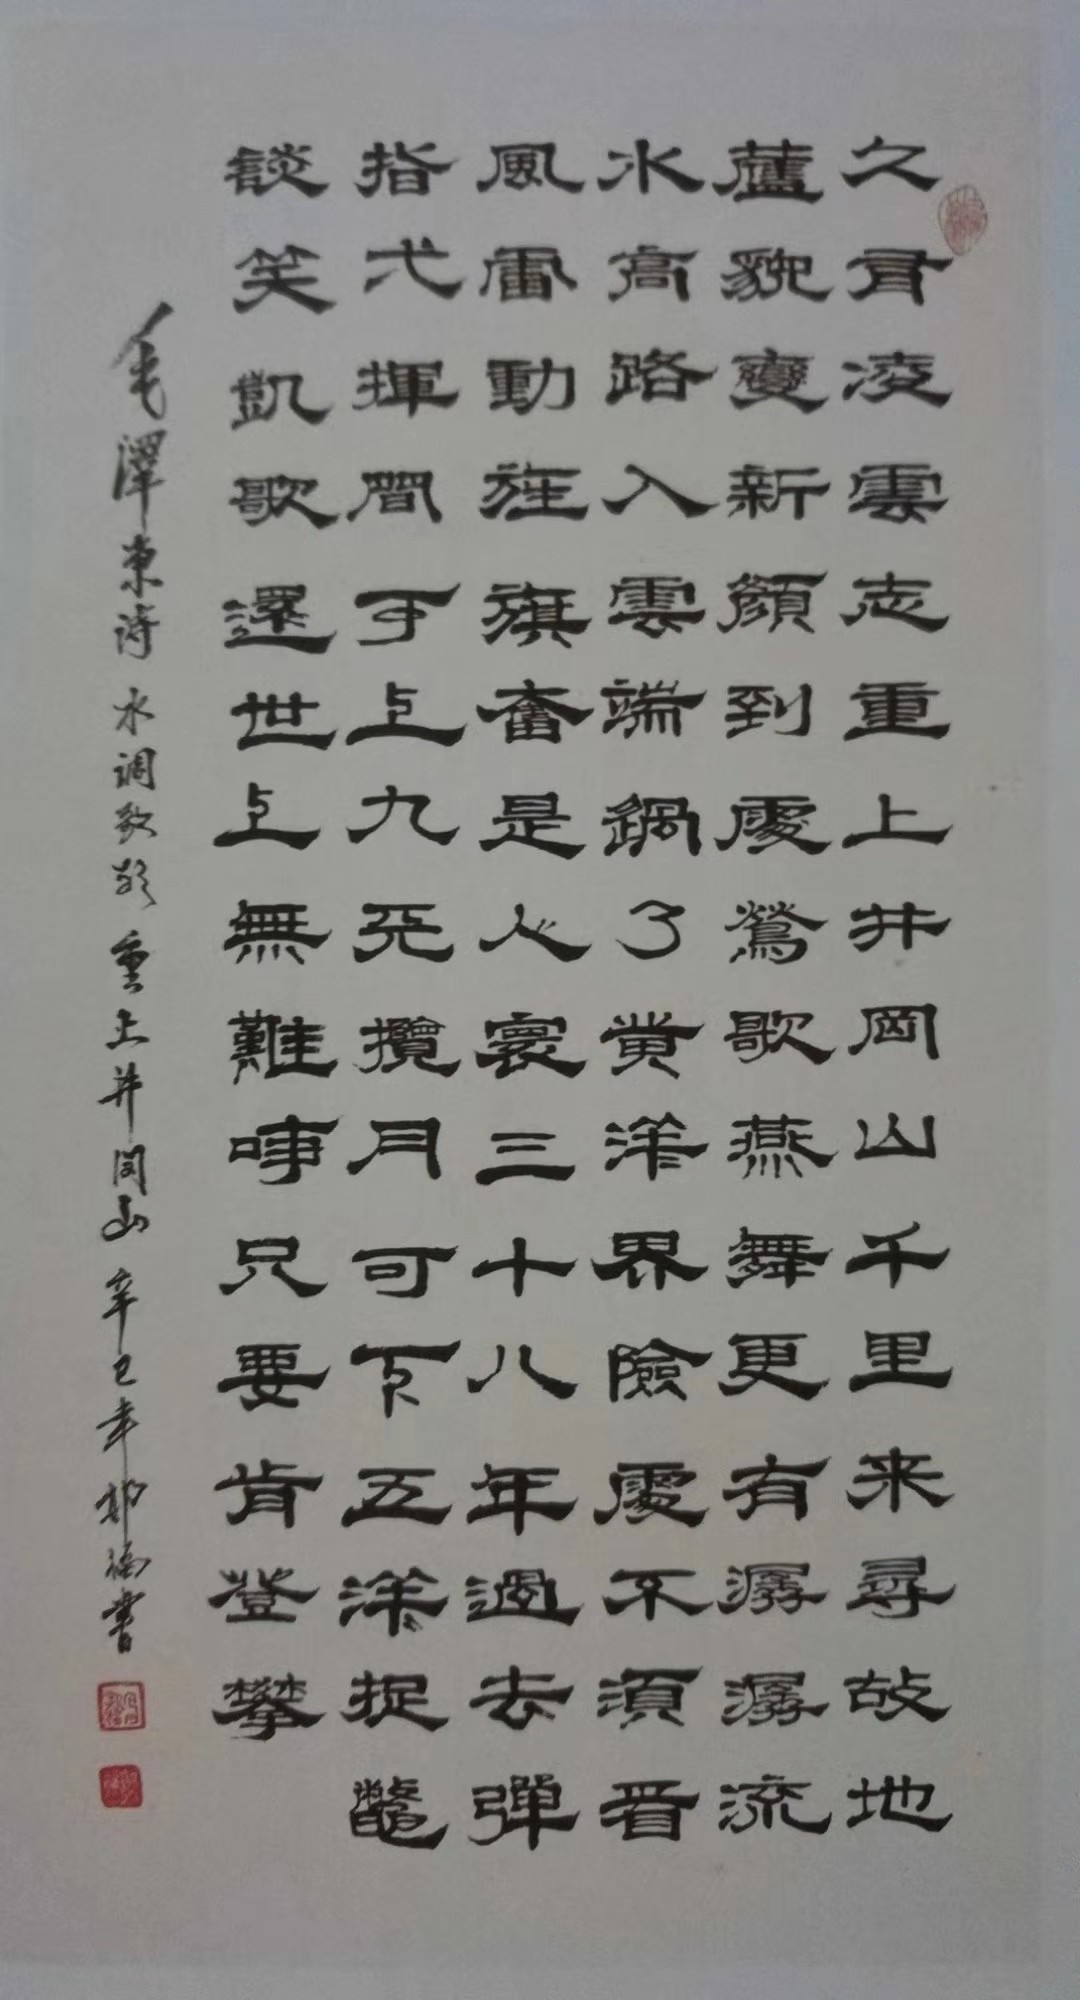 久有凌雲志重上井岡山千里来尋故地
舊貌變新顏到處鶯歌燕舞更有潺潺流
水高路入雲端鍋了黄洋界險處不須看
風雷動旌旗奮是人寰三十八年過去彈
指弌揮間可上九天攬月可下五洋捉鼈
談笑凱歌還世上無難事只要肯登攀
毛澤東詩 水調歌頭 重上井岡山 辛巳年 福書